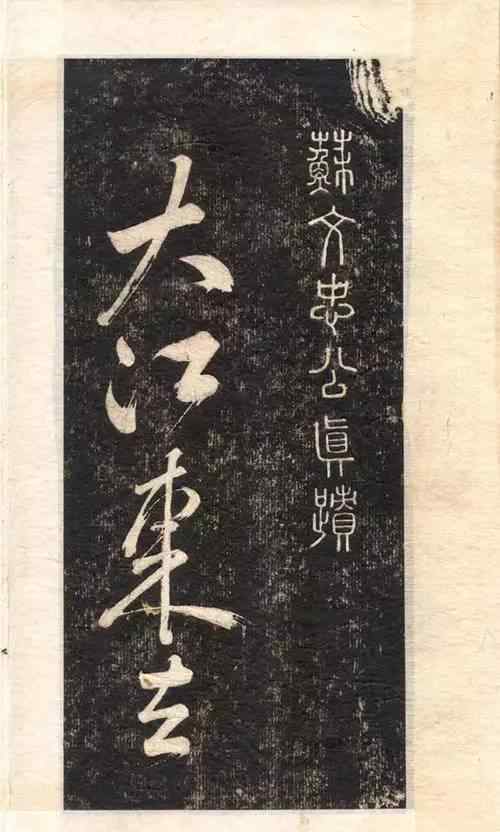 蘇文忠公眞蹟
大江東去